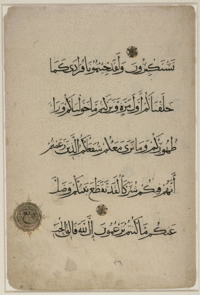 تستكبرون ولقد جئتمونا فرادى كما
خلقناكم أول مرة وتركتم ما خولناكم ورا
ظهوركم وما نرى معكم شفعاءكم الذين زعمتم
أنهم فيكم شركاء لقد تقطع بينكم وضل
عنكم ما كنتم تزعمون إن الله فالق الحب